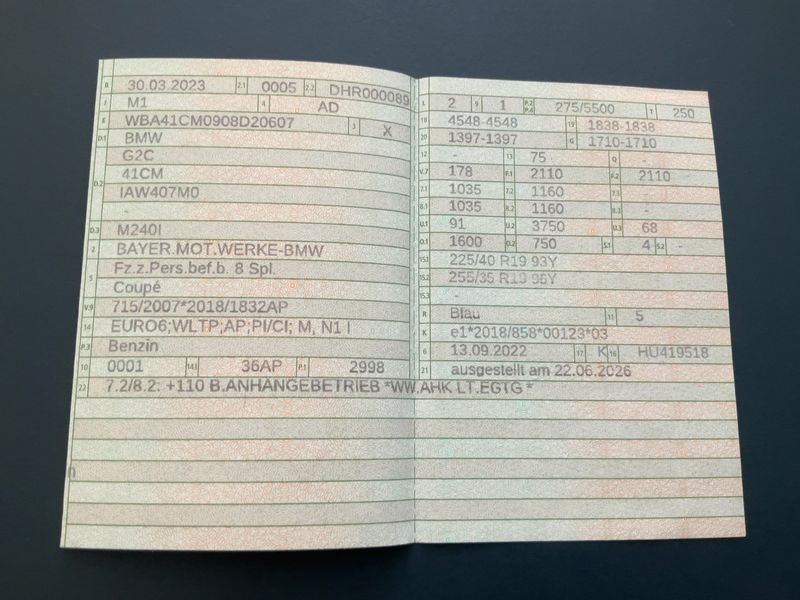 B 30.03.2023 2.1 0005 2.2 DHR000089
J M1 4 AD
E WBA41CM0908D20607 3 X
D.1 BMW
G2C
D.2 41CM
IAW407M0
-
D.3 M240I
2 BAYER.MOT.WERKE-BMW
5 Fz.z.Pers.bef.b. 8 Spl.
Coupé
V.9 715/2007*2018/1832AP
14 EURO6;WLTP;AP;PI/CI; M, N1 I
P.3 Benzin
10 0001 14.1 36AP P.1 2998
22 7.2/8.2: +110 B.ANHÄNGEBETRIEB *WW.AHK LT.EGTG *
L 2 9 1 P.2 P.4 275/5500 T 250
18 4548-4548 19 1838-1838
20 1397-1397 G 1710-1710
12 - 13 75 Q -
V.7 178 F.1 2110 F.2 2110
7.1 1035 7.2 1160 7.3 -
8.1 1035 8.2 1160 8.3 -
U.1 91 U.2 3750 U.3 68
O.1 1600 O.2 750 S.1 4 S.2 -
15.1 225/40 R19 93Y
15.2 255/35 R19 96Y
15.3 -
R Blau 11 5
K e1*2018/858*00123*03
6 13.09.2022 17 K 16 HU419518
21 ausgestellt am 22.06.2026